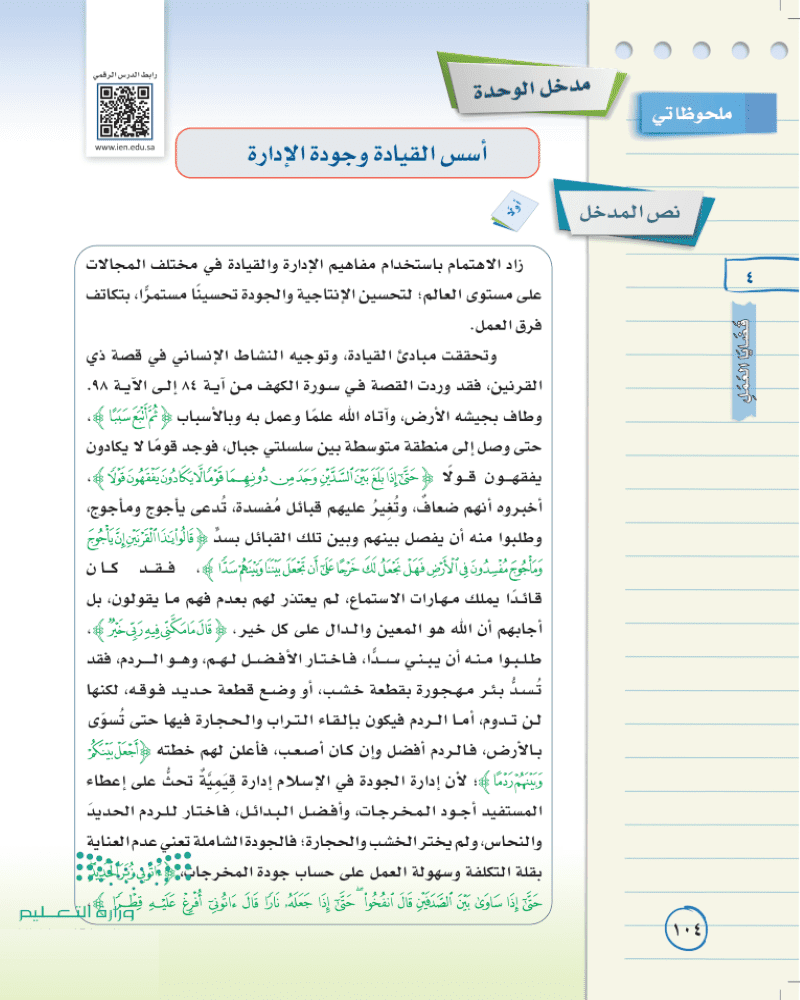 رابط الدرس الرقمي
www.ien.edu.sa
مدخل الوحدة
ملحوظاتي
أسس القيادة وجودة الإدارة
نص المدخل
أولًا
زاد الاهتمام باستخدام مفاهيم الإدارة والقيادة في مختلف المجالات
على مستوى العالم؛ لتحسين الإنتاجية والجودة تحسينًا مستمرًا، بتكاتف
فرق العمل.
وتحققت مبادئ القيادة، وتوجيه النشاط الإنساني في قصة ذي
القرنين، فقد وردت القصة في سورة الكهف من آية ٨٤ إلى الآية ٩٨.
وطاف بجيشه الأرض، وآتاه الله علمًا وعمل به وبالأسباب ﴿ ثُمَّ أَتْبَعَ سَبَبًا ﴾،
حتى وصل إلى منطقة متوسطة بين سلسلتي جبال، فوجد قومًا لا يكادون
يفقهون قولًا ﴿ حَتَّىٰ إِذَا بَلَغَ بَيْنَ ٱلسَّدَّيْنِ وَجَدَ مِن دُونِهِمَا قَوْمًا لَّا يَكَادُونَ يَفْقَهُونَ قَوْلًا ﴾،
أخبروه أنهم ضعافٌ، وتُغيرُ عليهم قبائل مُفسدة، تُدعى يأجوج ومأجوج،
وطلبوا منه أن يفصل بينهم وبين تلك القبائل بسدٍّ ﴿ قَالُوا۟ يَٰذَا ٱلْقَرْنَيْنِ إِنَّ يَأْجُوجَ
وَمَأْجُوجَ مُفْسِدُونَ فِى ٱلْأَرْضِ فَهَلْ نَجْعَلُ لَكَ خَرْجًا عَلَىٰٓ أَن تَجْعَلَ بَيْنَنَا وَبَيْنَهُمْ سَدًّا ﴾، فقد كان
قائدًا يملك مهارات الاستماع، لم يعتذر لهم بعدم فهم ما يقولون، بل
أجابهم أن الله هو المعين والدال على كل خير، ﴿ قَالَ مَا مَكَّنِّى فِيهِ رَبِّى خَيْرٌ ﴾،
طلبوا منه أن يبني سدًّا، فاختار الأفضل لهم، وهو الردم، فقد
تُسدُّ بئر مهجورة بقطعة خشب، أو وضع قطعة حديد فوقه، لكنها
لن تدوم، أما الردم فيكون بإلقاء التراب والحجارة فيها حتى تُسوّى
بالأرض، فالردم أفضل وإن كان أصعب، فأعلن لهم خطته ﴿ أَجْعَلْ بَيْنَكُمْ
وَبَيْنَهُمْ رَدْمًا ﴾؛ لأن إدارة الجودة في الإسلام إدارة قِيَمِيَّةٌ تحثُّ على إعطاء
المستفيد أجود المخرجات، وأفضل البدائل، فاختار للردم الحديدَ
والنحاس، ولم يختر الخشب والحجارة؛ فالجودة الشاملة تعني عدم العناية
بقلة التكلفة وسهولة العمل على حساب جودة المخرجات، ﴿ ءَاتُونِى زُبَرَ ٱلْحَدِيدِ
حَتَّىٰٓ إِذَا سَاوَىٰ بَيْنَ ٱلصَّدَفَيْنِ قَالَ ٱنفُخُوا۟ ۖ حَتَّىٰٓ إِذَا جَعَلَهُۥ نَارًا قَالَ ءَاتُونِىٓ أُفْرِغْ عَلَيْهِ قِطْرًا ﴾،
٤
قَضَايَا العَمَلِ
وزارة التعليم
١٠٤